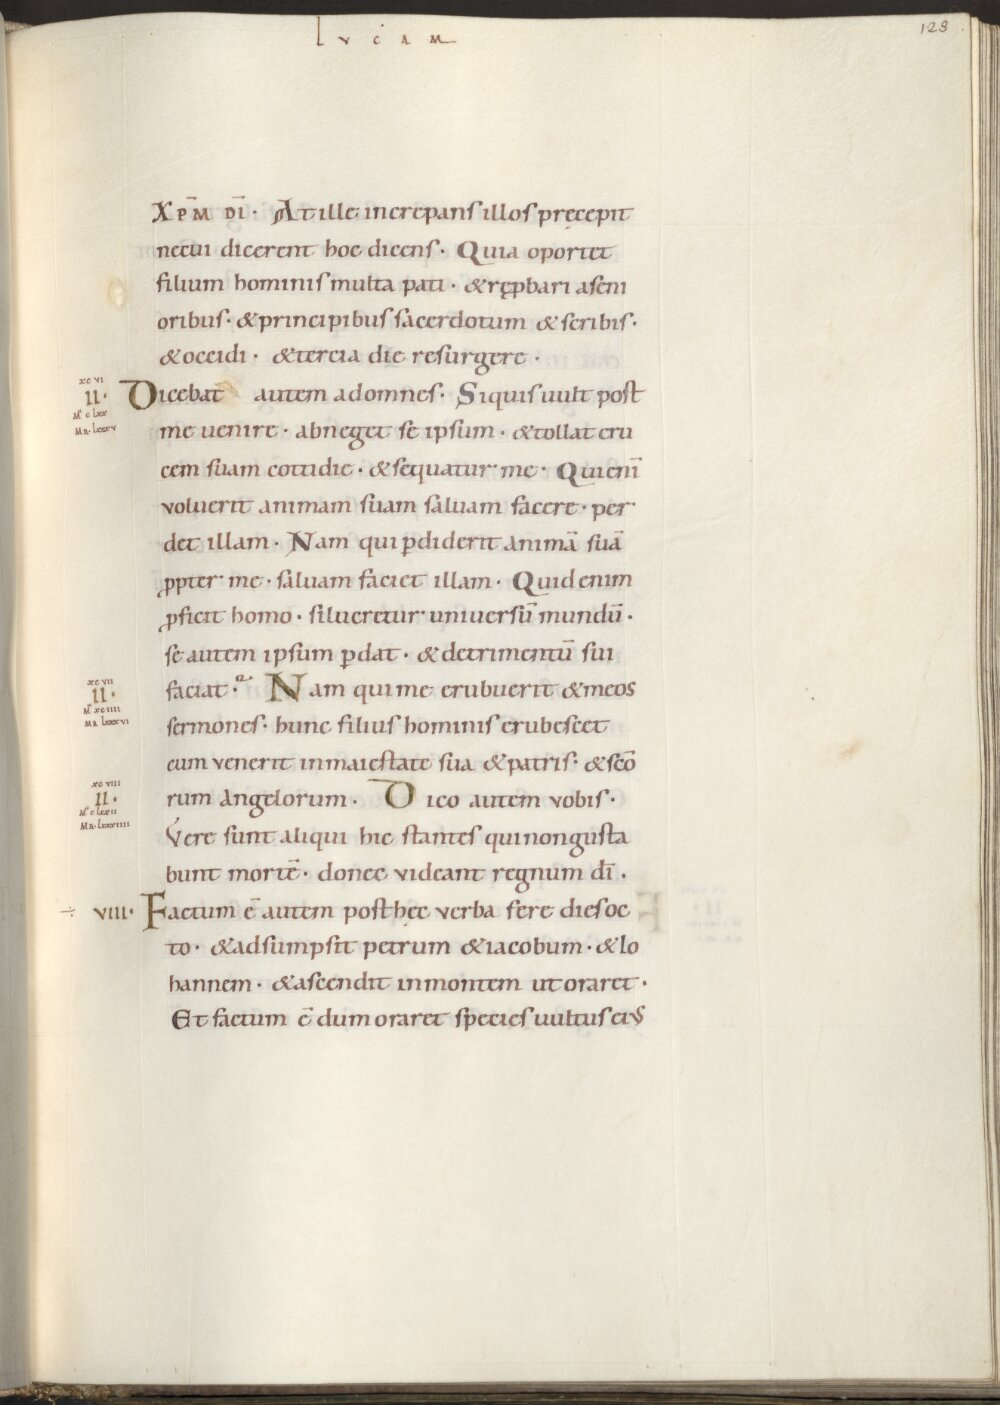 LVCAM
128
XPM̄ DĪ · At ille increpans illos pręcepit
necui dicerent hoc dicens · Quia oportet
filium hominis multa pati · & rep̱bari aseni
oribus · & principibus sacerdotum & scribis ·
& occidi · & tercia die resurgere ·
xc vi
II ·
Dicebat autem ad omnes · Siquis uult post
me uenire · abneget se ipsum · & tollat cru
cem suam cottidie · & sequatur me · Qui enī
voluerit animam suam saluam facere · per
det illam · Nam qui p̱diderit animā suā
ꝓpter me · saluam faciet illam · Quid enim
ꝓficit homo · si lucretur uniuersū mundū ·
se autem ipsum p̱dat · & detrimentū sui
xc vii
II ·
faciat · Nam qui me erubuerit & meos
M̄ xc iiii
Ma lxxxvi
sermones · hunc filius hominis erubescet
cum venerit in maiestate sua & patris · & scō
xc viii
II ·
rum angelorum · Dico autem vobis ·
M̄ c lxxii
Ma · lxxxviiii
Vere sunt aliqui hic stantes qui non gusta
bunt mortē · donec videant regnum dī ·
÷ VIII · Factum ē autem post hęc verba fere dies oc
to · & adsumpsit petrum & iacobum · & Io
hannem · & ascendit in montem ut oraret ·
Et factum ē dum oraret species uultus eius